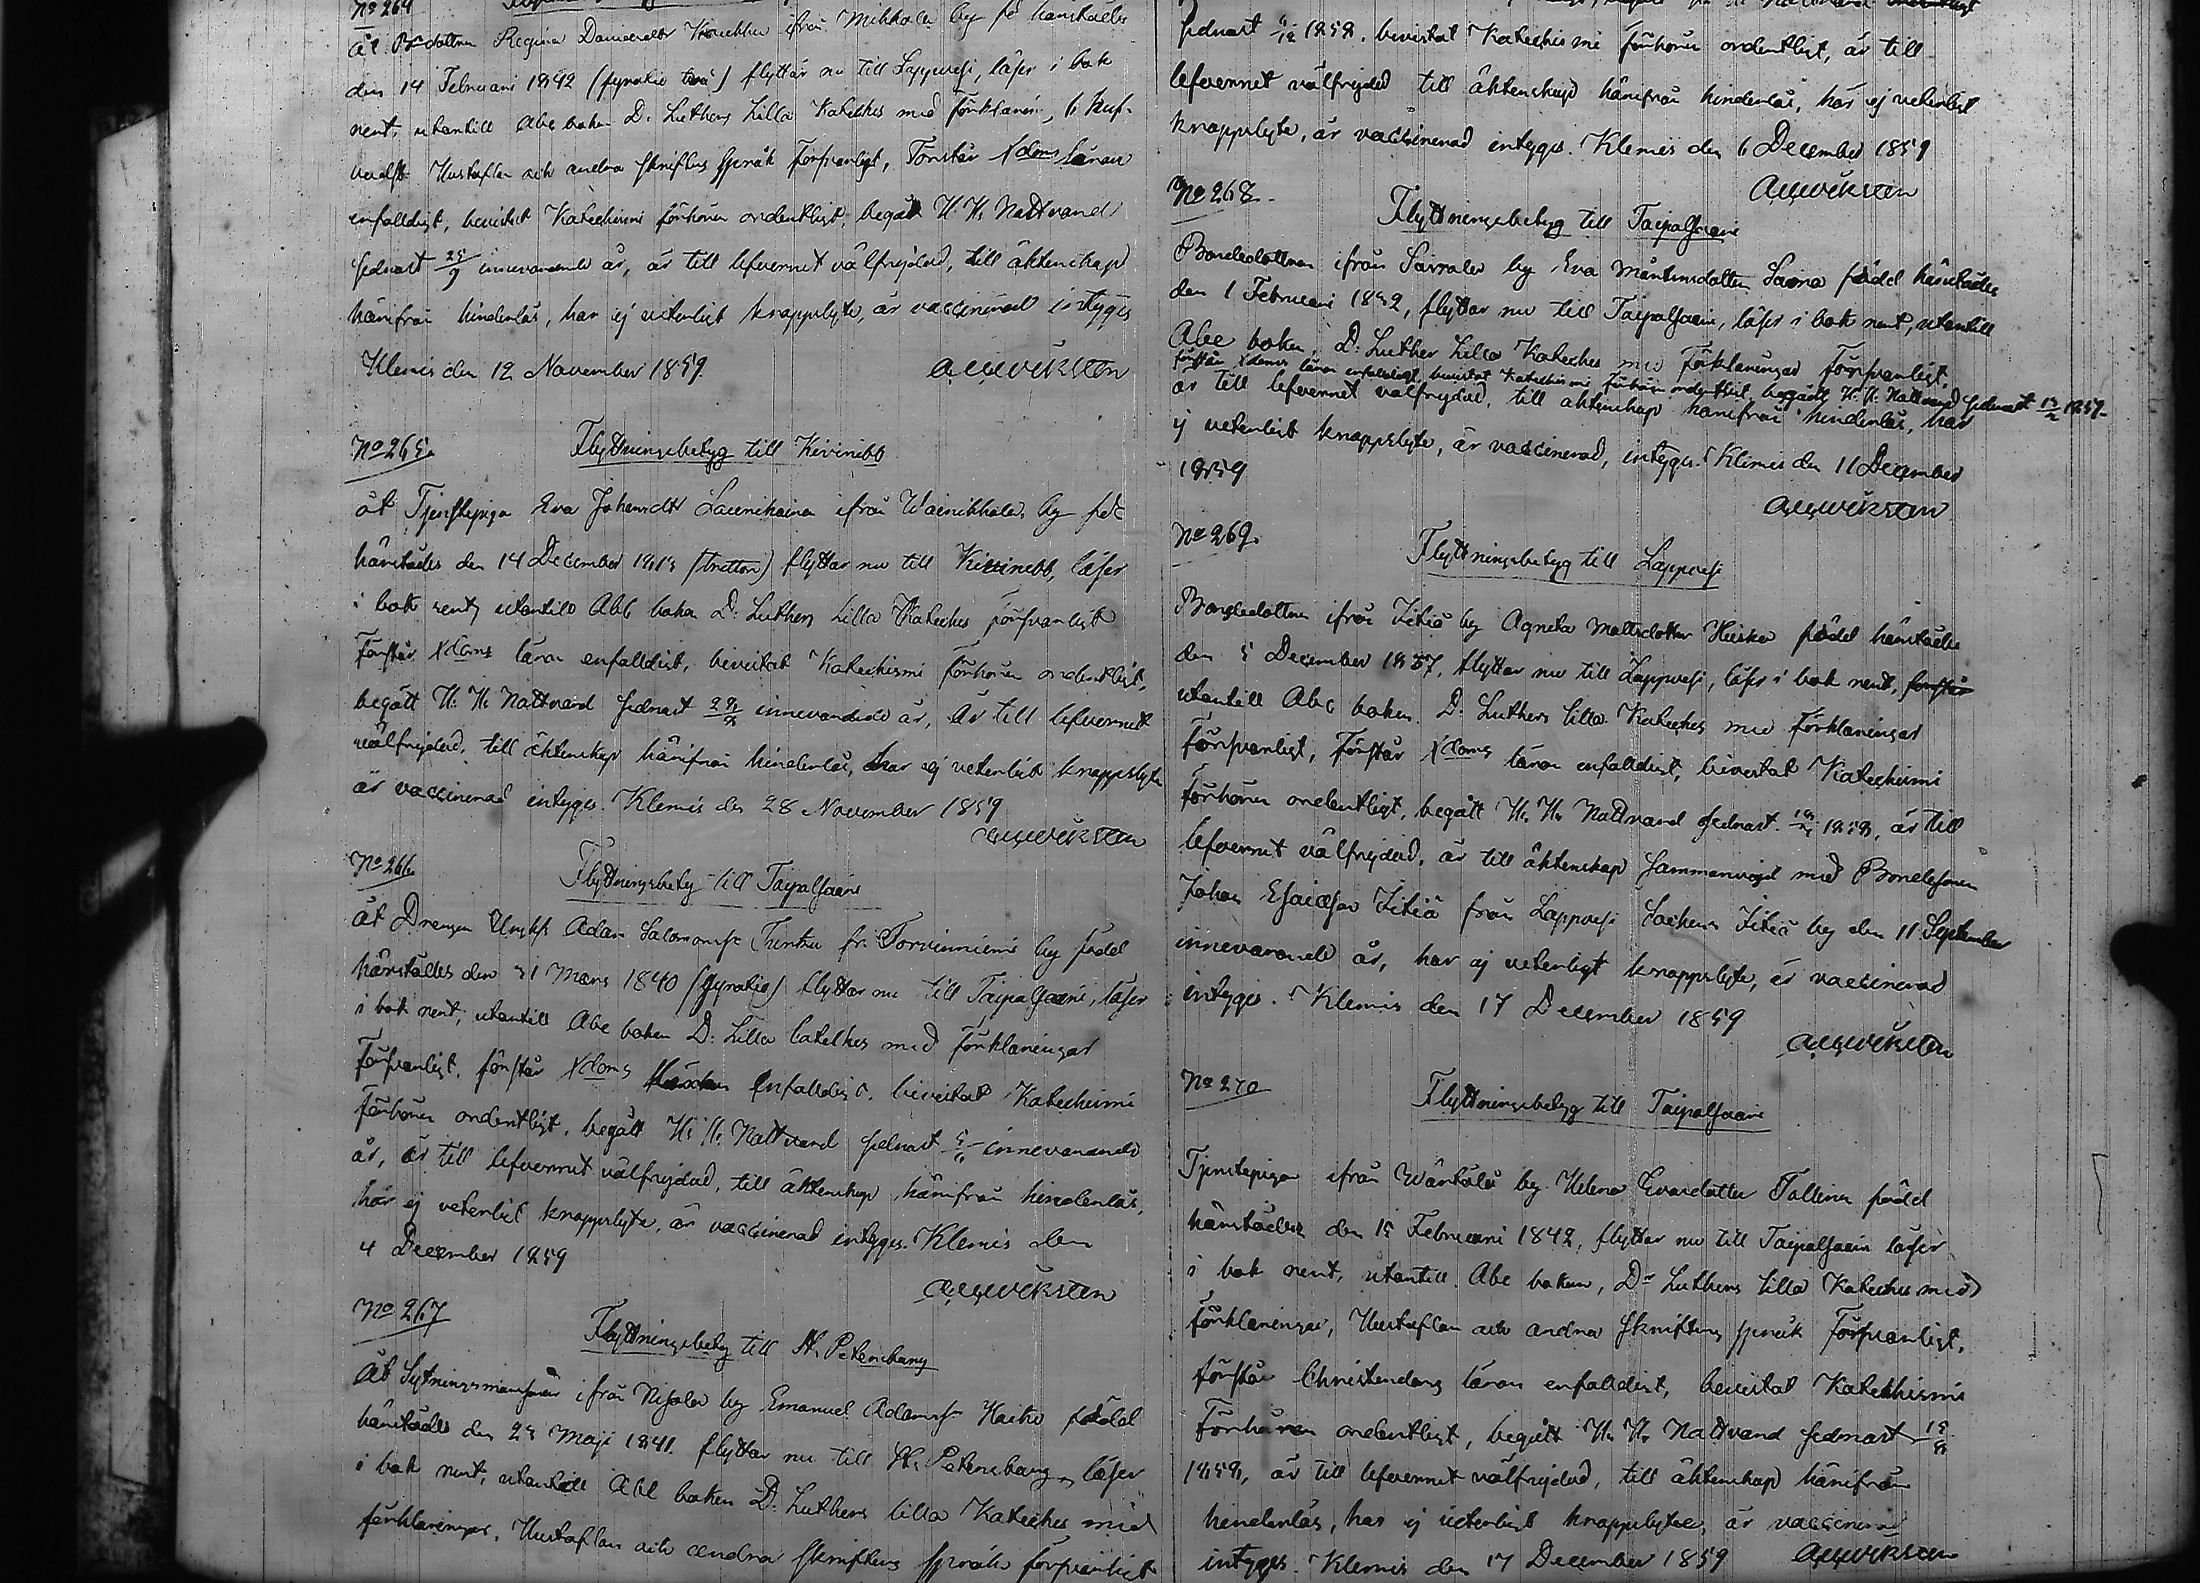 No 264
åt Bdottren Regina Danielsdr ifrån Mikkola by fö härstädes
den 14 Februari 1842 (fyratio två) flyttar nu till Lappvesi, läser i bok
rent, utantill Abc boken D. Luthers Lilla Kateches med förklarin, 6 huf-
Hustaflan och andra skriftens språk försvarligt, Förstår Xdoms läran
enfaldigt, bevistat Katechismi förhören ordentligt, begått H. H. Nattvard
sednast 25/9 innevarande år, är till lefvernet välfrejdad, till äktenskap
härifrån hinderlös, har ej veterligt knappslyte, är vaccinerad intygas
Klemis den 12 November 1859
No 265.
Flyttningsbetyg till Kivinebb
åt Tjenstepiga Eva Johansdtr Laurikainen ifrån Wainikkala by född
härstädes den 14 December 1813 (tretton) flyttar nu till Kivinebb, läser
i bok rent, utantill Abc boken D. Luthers Lilla Kateches försvarligt
Förstår Xdoms läran enfaldigt, bevistat Katechismi förhören ordentligt,
begått H. H. Nattvard sednast innevarande år, är till lefvernet
välfrejdad, till äktenskap härifrån hinderlös, har ej veterligt knappslyte
är vaccinerad intygas. Klemis den 28 November 1859
No 266
Flyttningsbetyg till Taipalsaari
åt Drengen Adam Salomonsn fr. Torvinniemi by född
härstädes den 31 Mars 1840 (fyratio) flyttar nu till Taipalsaari, läser
i bok rent, utantill Abc boken D: Lilla Cateches med förklaringar
försvarligt, förstår Xdoms enfaldigt, bevistat Katechismi
förhören ordentligt, begått H. H. Nattvard sednast innevarande
år, är till lefvernet välfrejdad, till äktenskap härifrån hinderlös,
har ej veterligt knappslyte, är vaccinerad intygas. Klemis den
4 December 1859
No 267
Flyttningsbetyg till St. Petersburg
åt Sytningsmansonen ifrån by Emanuel Adamsn född
härstädes den 23 Maji 1841. flyttar nu till St. Petersburg, läser
i bok rent, utantill Abc boken D. Luthers lilla Kateches med
förklaringar, Hustaflan och andra skriftens språk försvarligt
sednast 1858. bevistat Katechismi förhören ordentligt, är till
lefvernet välfrejdad till äktenskap härifrån hinderlös, har ej veterligt
knappslyte, är vaccinerad intygas. Klemis den 6 December 1859
No 268.
Flyttningsbetyg till Taipalsaari
Bondedottren ifrån by Eva Mårtensdotter född härstädes
den 1 Februari 1832, flyttar nu till Taipalsaari, läser i bok rent, utantill
Abc boken, D. Luther Lilla Kateches med Förklaringar Försvarligt,
förstår Xdoms läran enfaldigt, bevistat Katechismi förhören ordentligt, begått H. H. Nattvard sednast 1859-
är till lefvernet välfrejdad, till äktenskap härifrån hinderlös, har
ej veterligt knappslyte, är vaccinerad, intygas. Klemis den 11 December
1859
No 269.
Flyttningsbetyg till Lappvesi
Bondedottren ifrån Itiä by Agneta Mattsdotter född härstädes
den 5 December 1837, flyttar nu till Lappvesi, läser i bok rent, förstår
utantill Abc boken. D. Luthers lilla Kateches med förklaringar
försvarligt, förstår Xdoms läran enfaldigt, bevistat Katechismi
förhören ordentligt, begått H. H. Nattvard sednast 1858, är till
lefvernet välfrejdad, är till äktenskap sammanvigd med Bondesonen
Johan Esaiasson Itiä från Lappvesi Sochen Itiä by den 11 September
innevarande år, har ej veterligt knappslyte, är vaccinerad
intygas. Klemis den 17 December 1859
No 270
Flyttningsbetyg till Taipalsaari
Tjenstepigan ifrån by Helena Evasdotter född
härstädes den 15 Februari 1842, flyttar nu till Taipalsaari läser
i bok rent, utantill Abc boken, D:r Luthers lilla Kateches med
förklaringar, Hustaflan och andra skriftens språk försvarligt,
förstår Christendoms läran enfaldigt, bevistat Katekhismi
Förhören ordentligt, begått H. H. Nattvard sednast
1858, är till lefvernet välfrejdad, till äktenskap härifrån
hinderlös, har ej veterligt knappslyte, är vaccinerad
intygas. Klemis den 17 December 1859